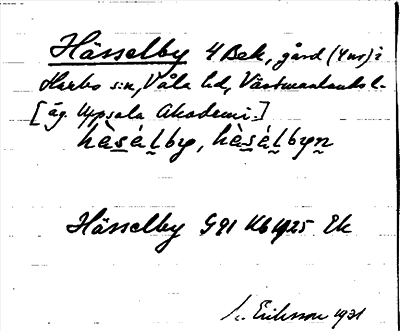 Hässelby 4 Bek, gård (4 nr) i
Harbo s:n, Våla hd, Västmanlands l.
[äg. Uppsala Akademi.]
hèsélby, hèsélbyn
Hässelby G91 Kb 1925 Ek
Eriksson 1931